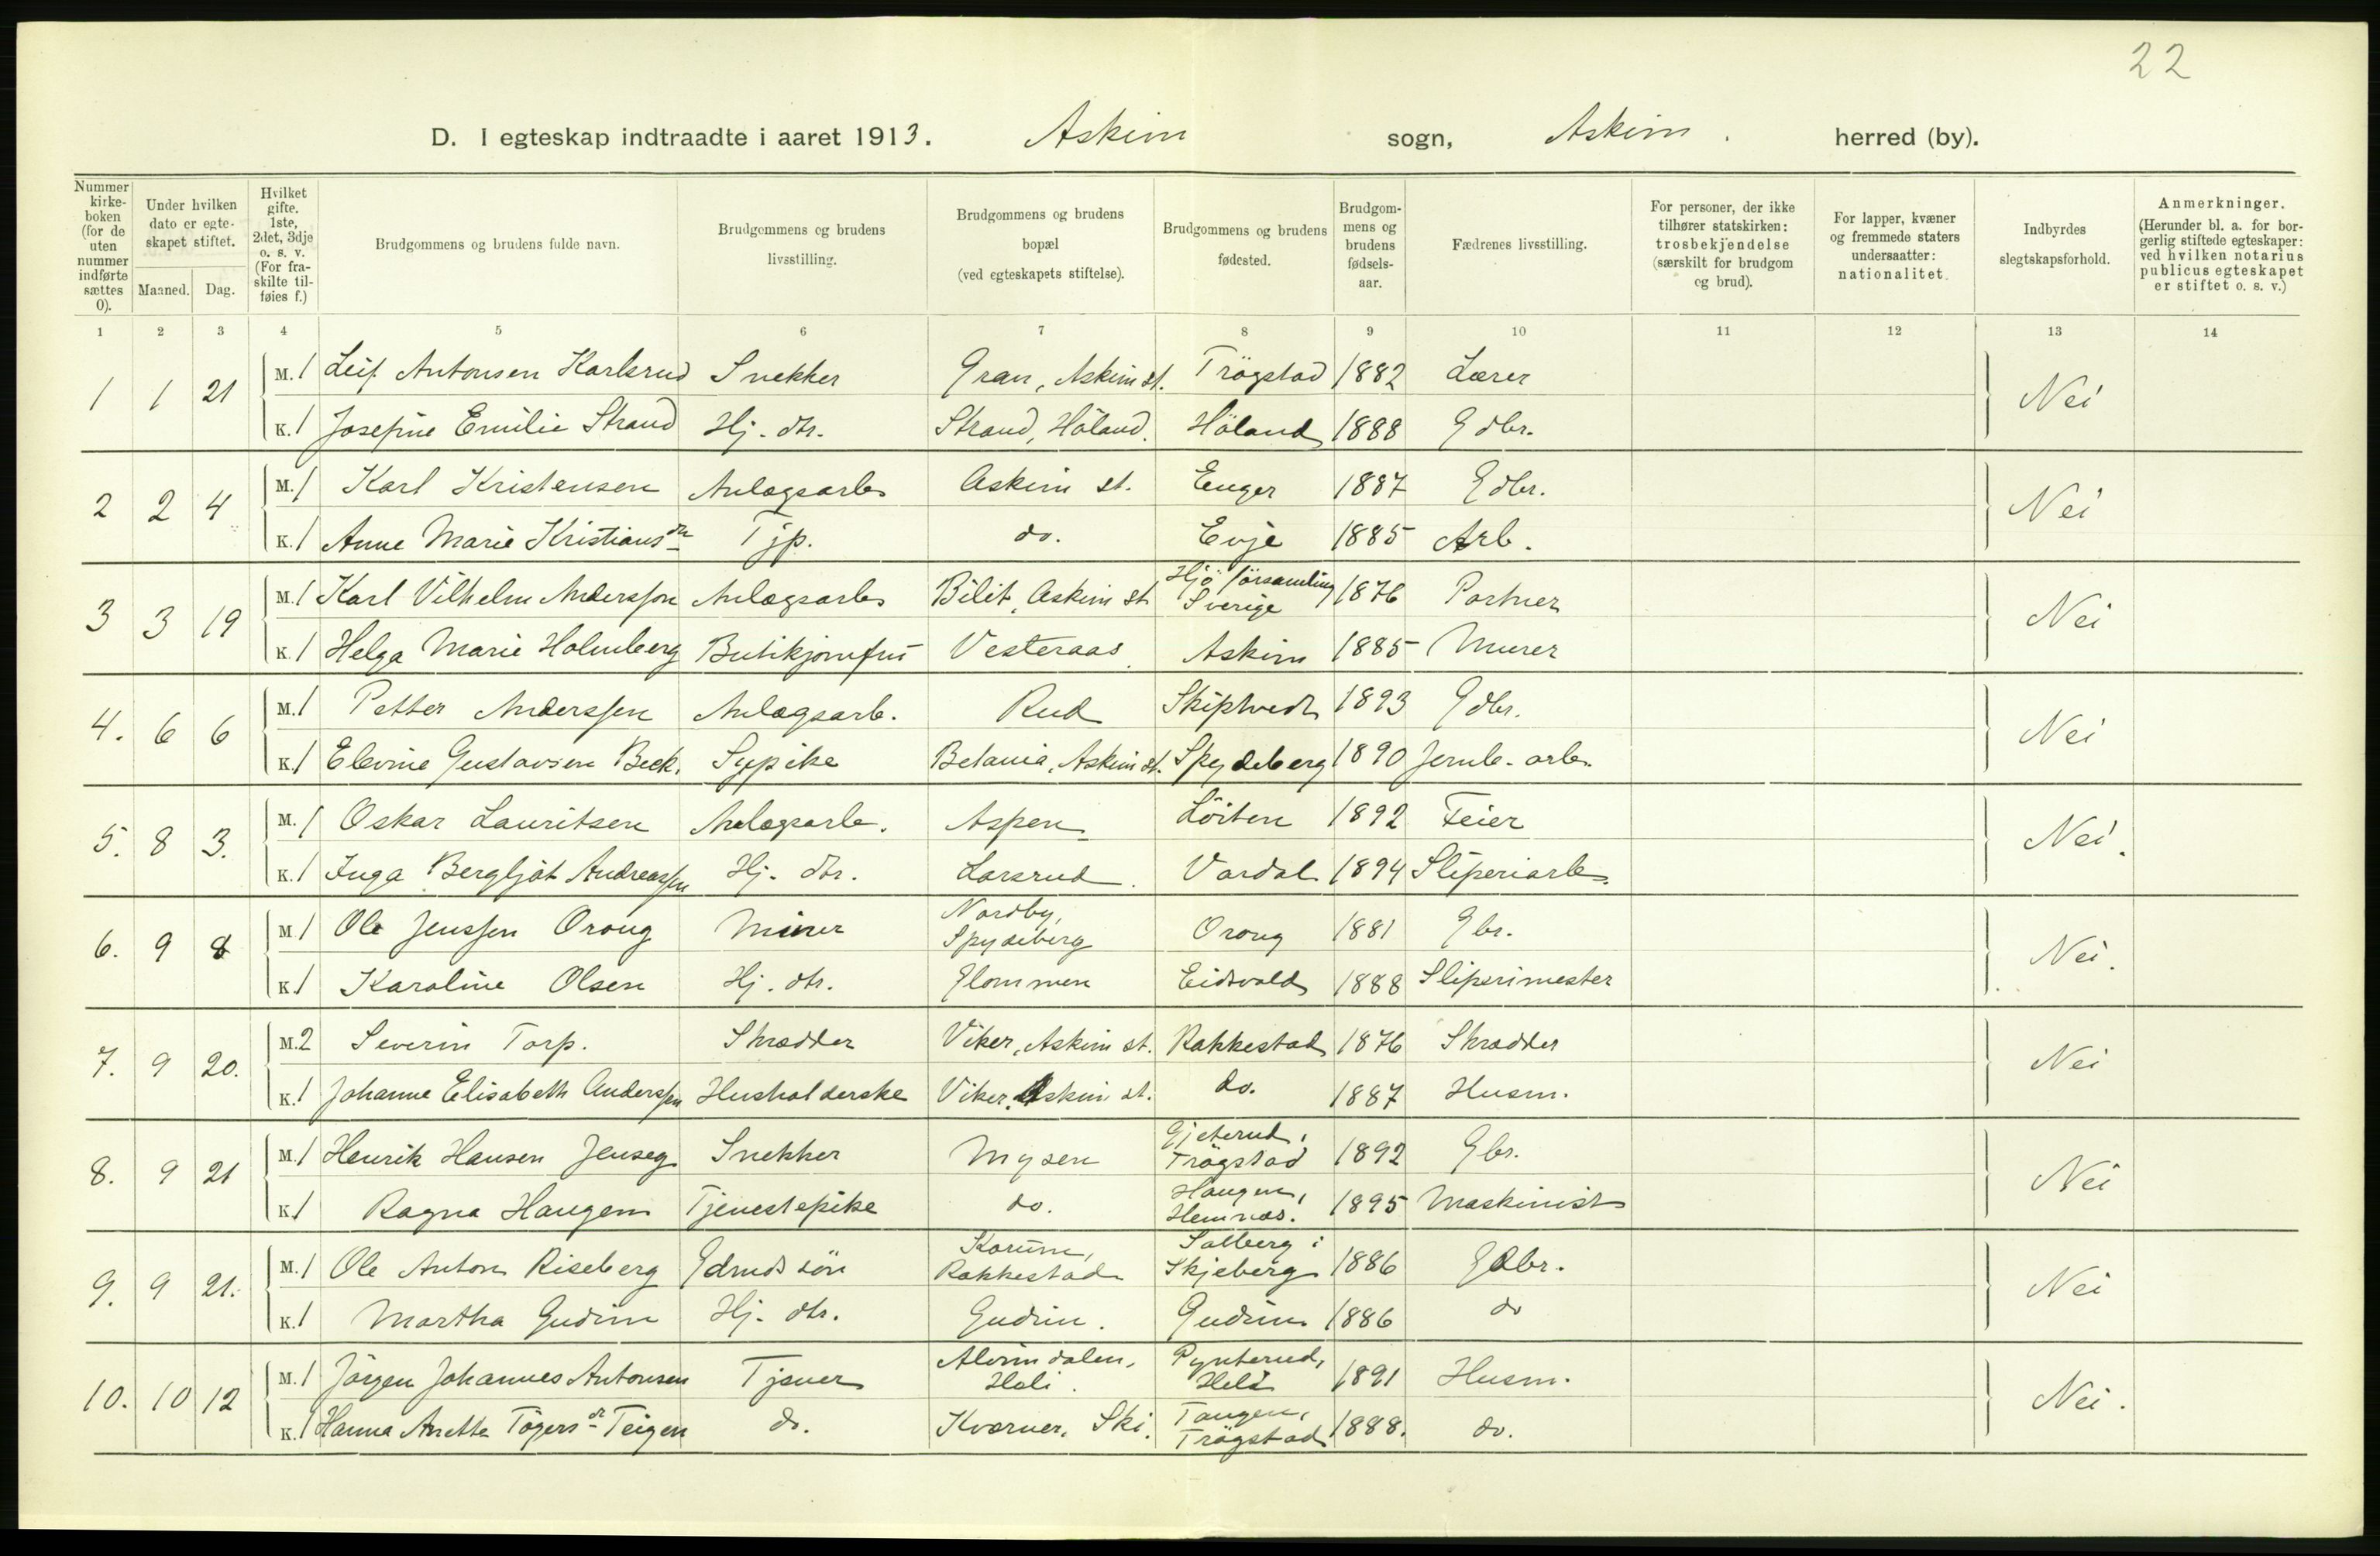 22
D. I egteskap indtraadte i aaret 1913. Askim sogn, Askim. herred (by).
Nummer kirkeboken (for de uten nummer indførte sættes 0).
Under hvilken dato er egteskapet stiftet.
Maaned. Dag.
Hvilket gifte. 1ste, 2det, 3dje o. s. v. (For fraskilte tilføies f.)
Brudgommens og brudens fulde navn.
Brudgommens og brudens livsstilling.
Brudgommens og brudens bopæl (ved egteskapets stiftelse).
Brudgommens og brudens fødested.
Brudgommens og brudens fødselsaar.
Fædrenes livsstilling.
For personer, der ikke tilhører statskirken: trosbekjendelse (særskilt for brudgom og brud).
For lapper, kvæner og fremmede staters undersaatter: nationalitet.
Indbyrdes slegtskapsforhold.
Anmerkninger. (Herunder bl. a. for borgerlig stiftede egteskaper: ved hvilken notarius publicus egteskapet er stiftet o. s. v.)
1 2 3 4 5 6 7 8 9 10 11 12 13 14
1 1 21 M. 1 Leif Antonsen Karlsrud Snekker Gran, Askim st. Trögstad 1882 Lærer Nei
K. 1 Josefine Emilie Strand Hj. dtr. Strand, Höland. Höland 1888 Gdbr.
2 2 4 M. 1 Karl Kristensen Anlægsarb Askim st. Enger 1887 Gdbr. Nei
K. 1 Anne Marie Kristiansdtr Tjp. do. Evje 1885 Arb.
3 3 19 M. 1 Karl Vilhelm Andersson Anlægsarb Bilit, Askim st Hjö församling Sverige 1876 Portner Nei
K. 1 Helga Marie Holmberg Butikjomfru Vesteraas Askim 1885 Murer
4. 6 6 M. 1 Petter Anderssen Anlægsarb. Rud Skiptvedt 1893 Gdbr. Nei
K. 1 Elevine Gustavsen Beck. Sypike Betania, Askim st. Spydeberg 1890 Jernb. arb.
5. 8 3. M. 1 Oskar Lauritsen Anlægsarb. Aspen Löiten 1892 Feier Nei.
K. 1 Inga Bergljot Andreassen Hj. dtr. Larsrud. Vardal 1894 Sliperiarb.
6. 9 8 M 1 Ole Jenssen Oroug Minør Nordby, Spydeberg Oroug 1881 Gbr. Nei.
K. 1 Karoline Olsen Hj. dtr. Glommen Eidsvold 1888 Sliperimester
7. 9 20. M. 2 Severin Torp. Skrædder Viker, Askim st. Rakkestad 1876 Skrædder Nei
K. 1 Johanne Elisabeth Anderssen Husholderske Viker, Askim st. do. 1887 Husm.
8. 9 21 M. 1 Henrik Hansen Jenseg Snekker Mysen Gjeterud, Trögstad 1892 Gbr. Nei
K. 1 Ragna Haugen Tjenestepike do. Haugen, Hemnæs. 1895 Maskinist
9. 9 21. M. 1 Ole Anton Riseberg Gdmds sön Rakkestad Solberg i Skjeberg 1886 Gdbr. Nei
K. 1 Martha Gudim Hj. dtr. Gudim. Gudim 1886 do
10. 10 12 M. 1 Jörgen Johannes Antonsen Tjener Pynterud, 1891 Husm. Nei.
K. 1 Hanna Anette Tögersdr Teigen do. Kværner, Ski. Tangen, Trögstad 1888. do.